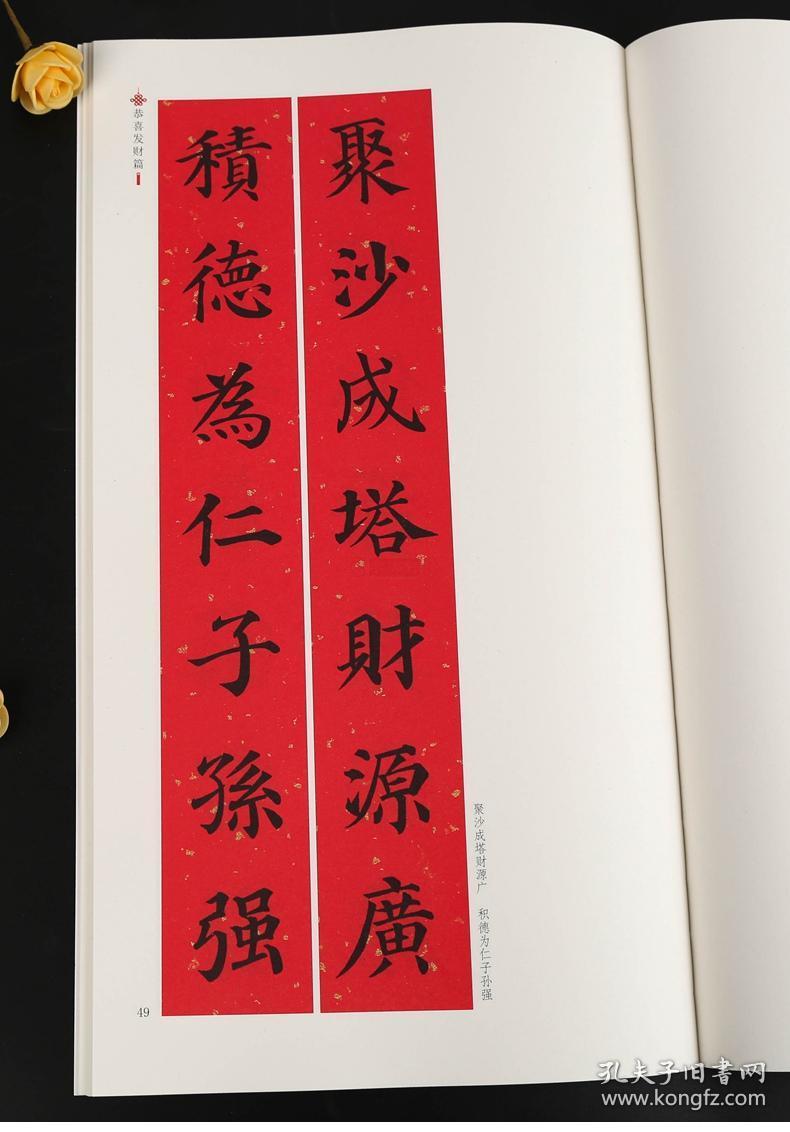 聚沙成塔財源廣
積德為仁子孫强
恭喜发财篇
聚沙成塔财源广 积德为仁子孙强
49
孔夫子旧书网
www.kongfz.com